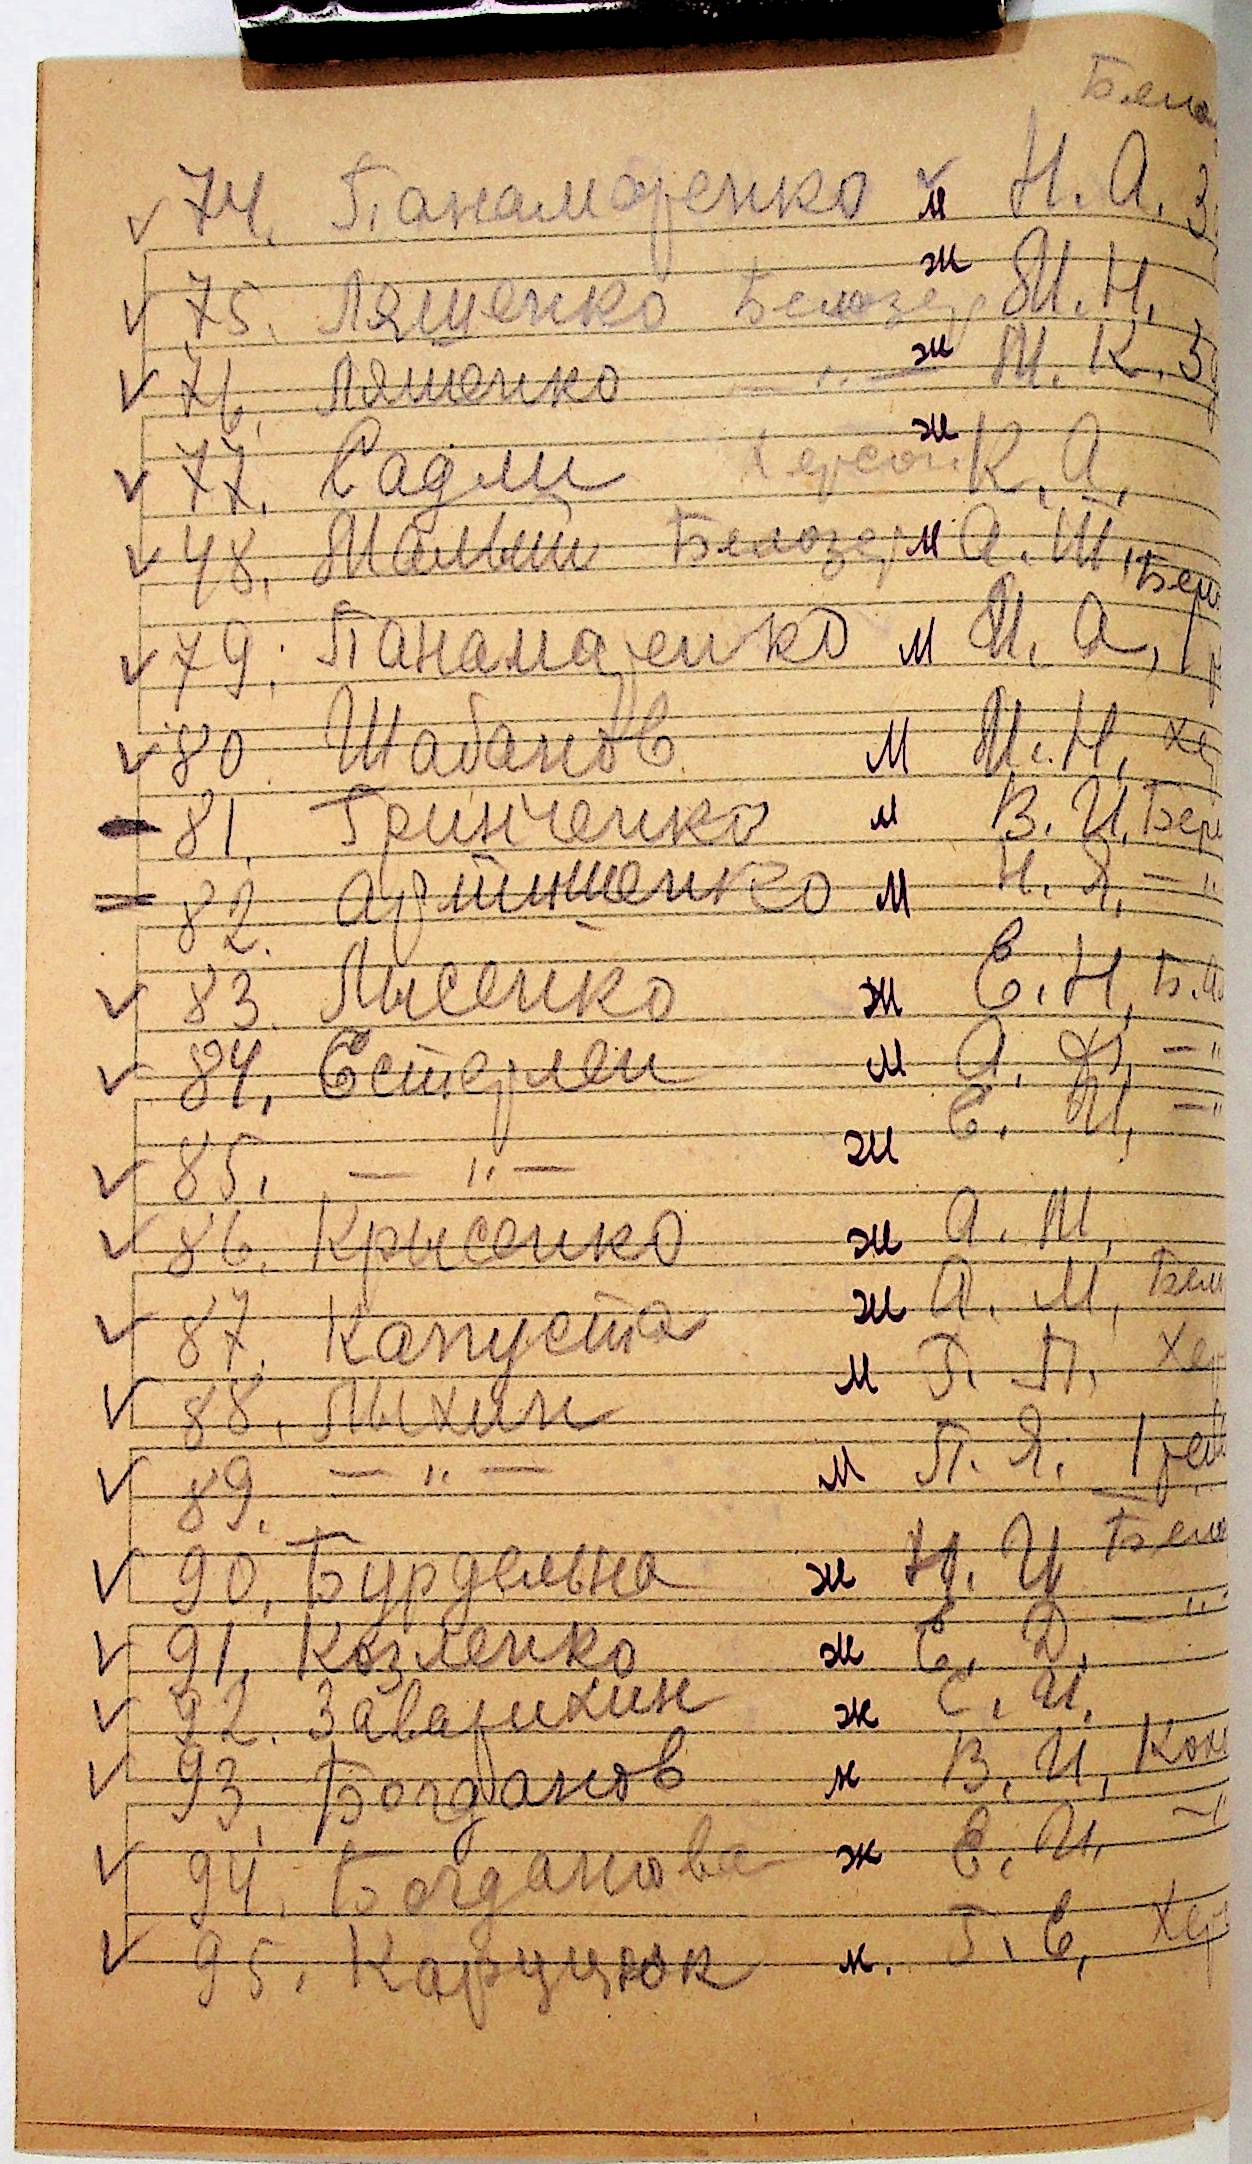 Бело
74. Панамаренко м Н. А. З
75. Лященко Белозер ж М. Н.
76. Лященко — " — ж М. К.
77. Садли Херсон ж К. А.
48. Малыш Белозер м А. Т.
79. Панамаренко м И. А.
80 Шабанов м И. Н. хер
81. Гринченко м В. И. Бери
82. Артишенко м Н. Я. — "
83. Лысенко ж Е. Н. Б.
84. Естерлеи м А. Ф. — "
85. — " — ж Е. И. — "
86. Крысенко ж А. М.
87. Капуста ж А. М. Бел
88. Лыхин м Г. П. Хер
89. — " — м П. Я.
90. Бурдельна ж Н. И. Бело
91. Козленко ж Е. Д. — "
92. Заварихин ж Е. И.
93. Богданов м В. И. Кон
94. Богданова ж Е. И. — "
95. Каруцюк м. Г. Е. Хер